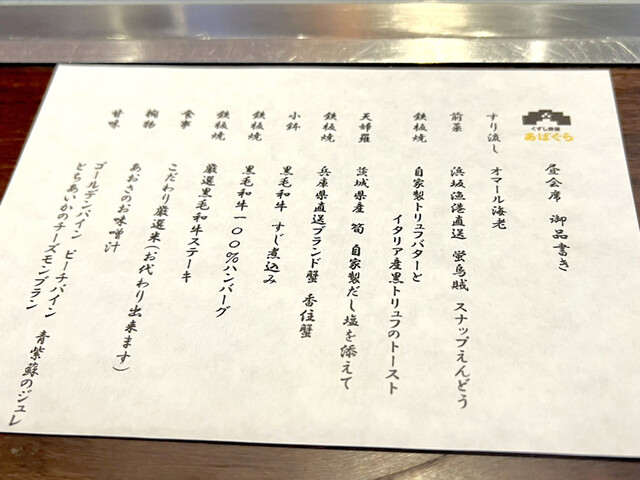 くずし鉄板
あばぐら
昼会席 御品書き
すり流し オマール海老
前菜 浜坂漁港直送 蛍烏賊 スナップえんどう
鉄板焼 自家製トリュフバターと
イタリア産黒トリュフのトースト
天婦羅 茨城県産 筍 自家製だし塩を添えて
鉄板焼 兵庫県直送ブランド蟹 香住蟹
小鉢 黒毛和牛 すじ煮込み
鉄板焼 黒毛和牛一〇〇%ハンバーグ
鉄板焼 厳選黒毛和牛ステーキ
食事 こだわり厳選米(お代わり出来ます)
椀物 あおさのお味噌汁
甘味 ゴールデンパイン ピーチパイン
とちあいかのチーズモンブラン 青紫蘇のジュレ